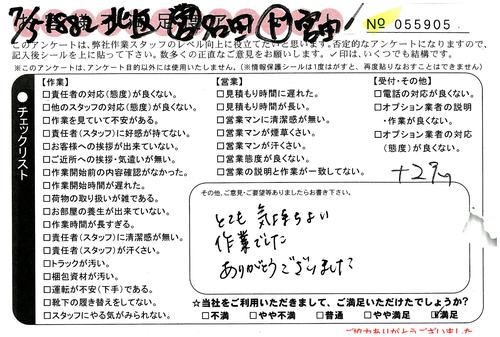 7/5 5882 北区 営 名田 作 宮内
No 055905
このアンケートは、弊社作業スタッフのレベル向上に役立てたいと思います。否定的なアンケートになりますので、
記入後シールを上に貼って下さい。数多くの正直なご意見をお願いします。✓印は、いくつでも結構です。
※このアンケートは、アンケート目的以外には使用いたしません。(※情報保護シールは1度はがすと、再度貼りなおすことはできません)
チェックリスト
【作業】
□責任者の対応(態度)が良くない。
□他のスタッフの対応(態度)が良くない。
□作業を見ていて不安がある。
□責任者(スタッフ)に好感が持てない。
□お客様への挨拶が出来ていない。
□ご近所への挨拶・気遣いが無い。
□作業開始前の内容確認がなかった。
□作業開始時間が遅れた。
□荷物の取り扱いが雑である。
□お部屋の養生が出来ていない。
□作業時間が長すぎる。
□責任者(スタッフ)に清潔感が無い。
□責任者(スタッフ)が汗くさい。
□トラックが汚い。
□梱包資材が汚い。
□運転が不安(下手)である。
□靴下の履き替えをしてない。
□スタッフにやる気がみられない。
【営業】
□見積もり時間に遅れた。
□見積もり時間が長い。
□営業マンに清潔感が無い。
□営業マンが煙草くさい。
□営業マンが汗くさい。
□営業態度が良くない。
□営業の説明と作業が一致してない。
【受付・その他】
□電話の対応が良くない。
□オプション業者の説明
・作業が良くない。
□オプション業者の対応
(態度)が良くない。
その他、ご意見・ご要望等ありましたらお書き下さい。
とても 気持ちよい
作業でした
ありがとうございました
☆当社をご利用いただきまして、ご満足いただけたでしょうか?
□不満 □やや不満 □普通 □やや満足 ☑満足
ご協力ありがとうございました